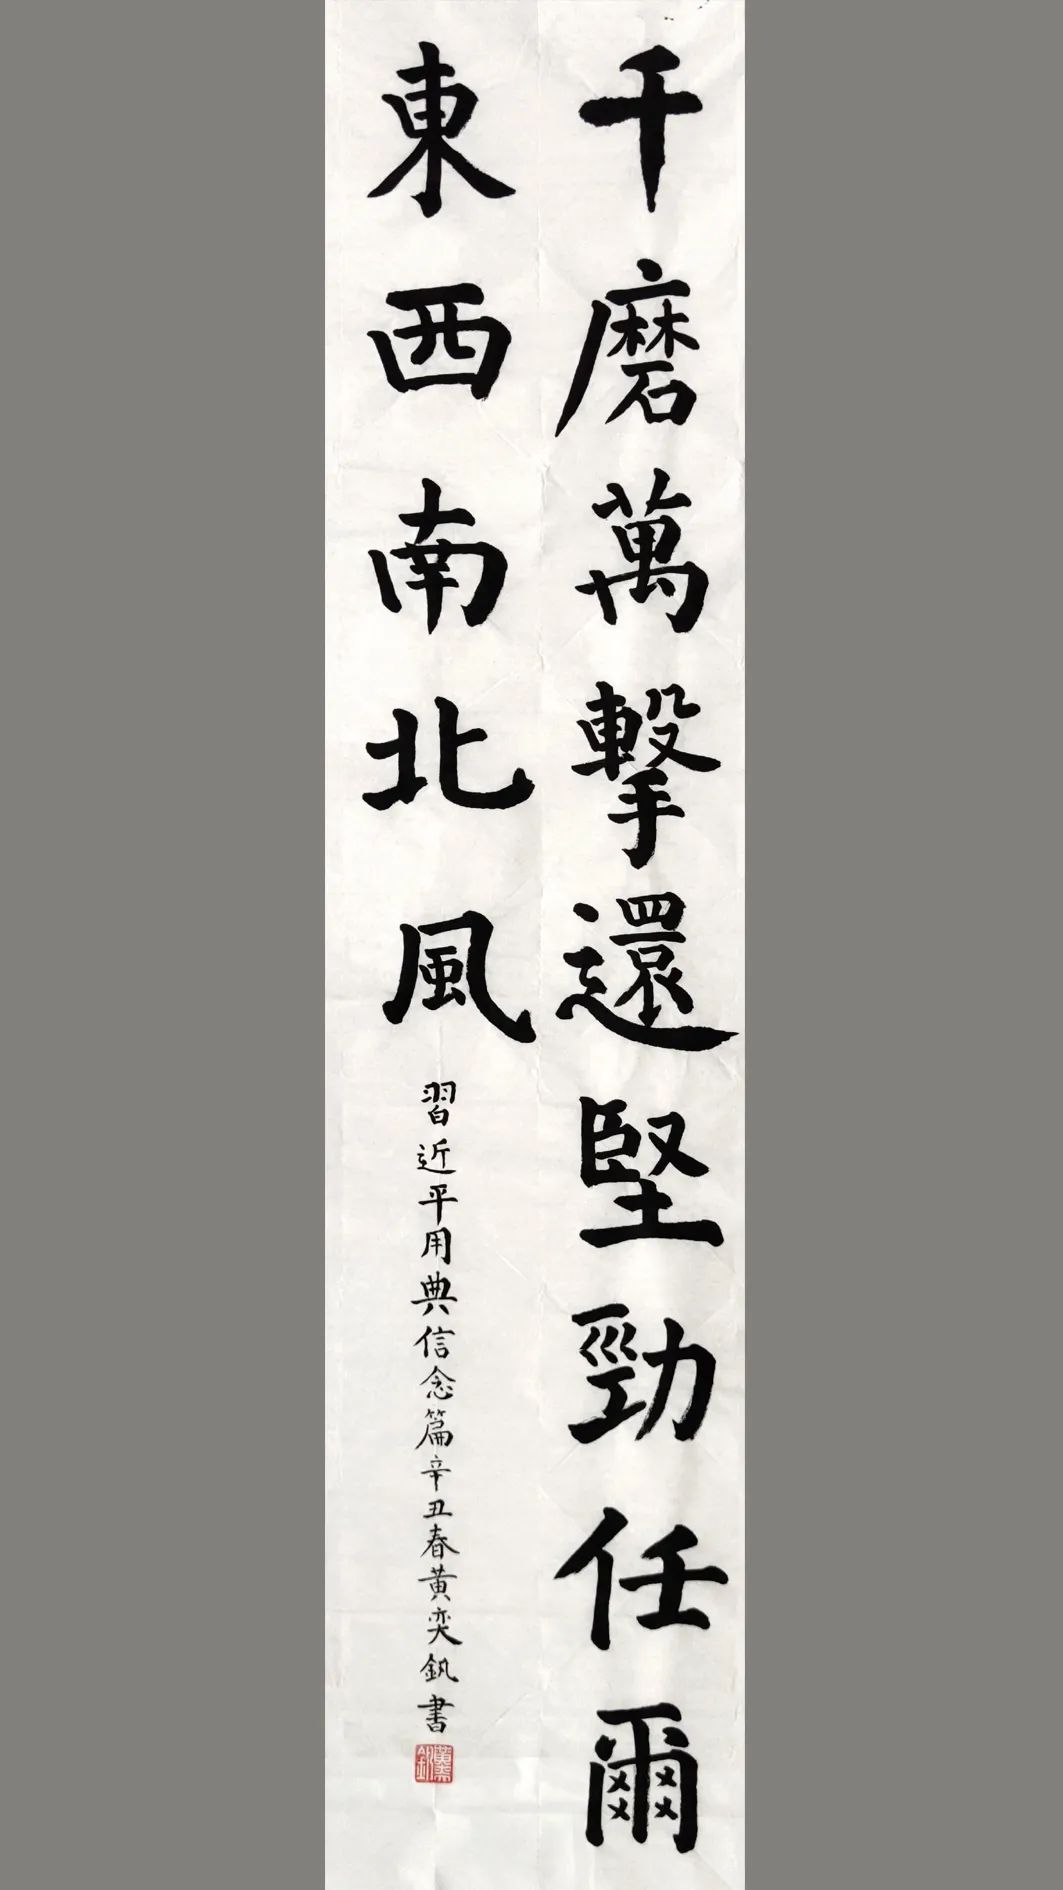 千磨萬擊還堅勁任爾
東西南北風
習近平用典信念篇辛丑春黄奕釩書